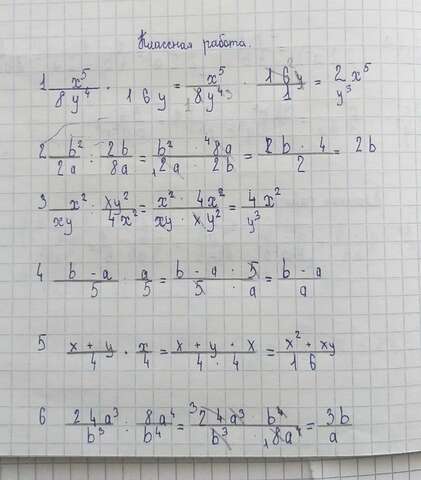 Классная работа.
1 x⁵/8y⁴ · 16y = x⁵/8y⁴ · 16y/1 = 2x⁵/y³
2 b²/2a : 2b/8a = b²/2a · 8a/2b = 2b · 4/2 = 2b
3 x²/xy : xy²/4x² = x²/xy · 4x²/xy² = 4x²/y³
4 b - a/5 : a/5 = b - a/5 · 5/a = b - a/a
5 x + y/4 · x/4 = x + y · x/4 · 4 = x² + xy/16
6 24a³/b³ : 8a⁴/b⁴ = 24a³/b³ · b⁴/8a⁴ = 3b/a